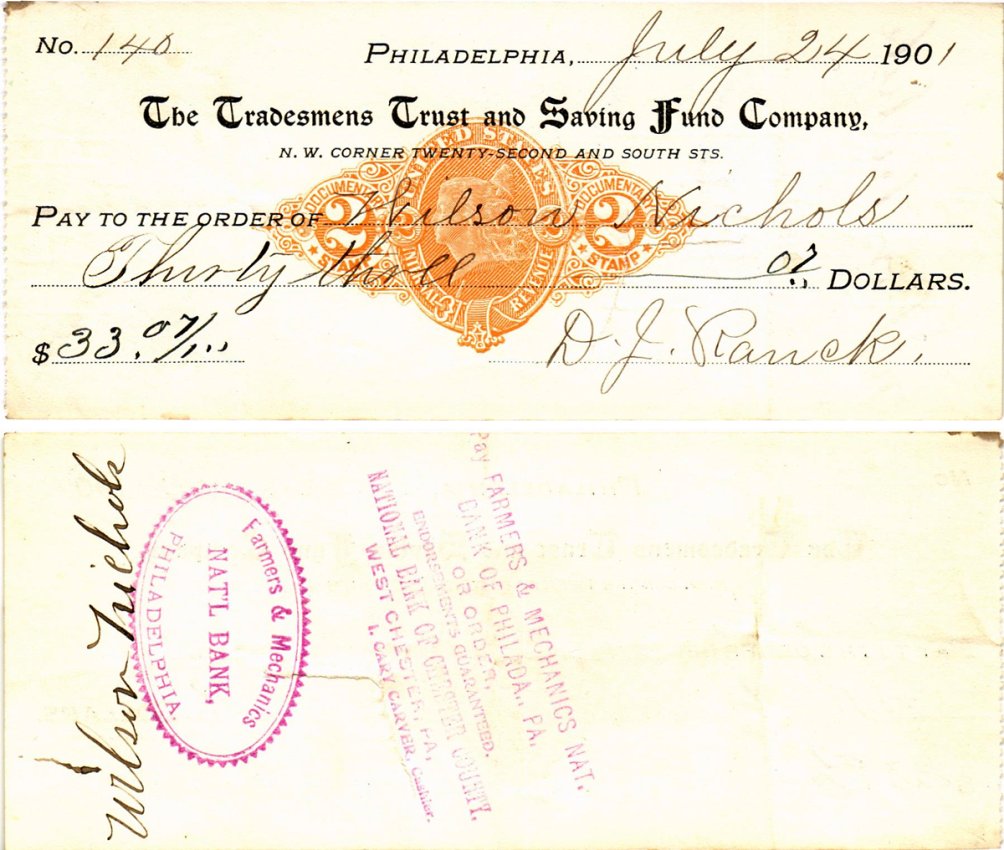 No. 140 Philadelphia, July 24 1901
The Tradesmens Trust and Saving Fund Company,
N. W. CORNER TWENTY-SECOND AND SOUTH STS.
UNITED STATES
DOCUMENTARY 2 STAMP
DOCUMENTARY 2 STAMP
INTERNAL REVENUE
PAY TO THE ORDER OF Wilson Nichols
Thirty three 07/.. DOLLARS.
$33.07/...
D. J. Ranck.
Wilson Nichols
Farmers & Mechanics
NAT'L BANK,
PHILADELPHIA.
Pay FARMERS & MECHANICS NAT.
BANK OF PHILADA., PA.
OR ORDER,
ENDORSEMENTS GUARANTEED.
NATIONAL BANK OF CHESTER COUNTY,
WEST CHESTER, PA,
I. CARY CARVER, Cashier.